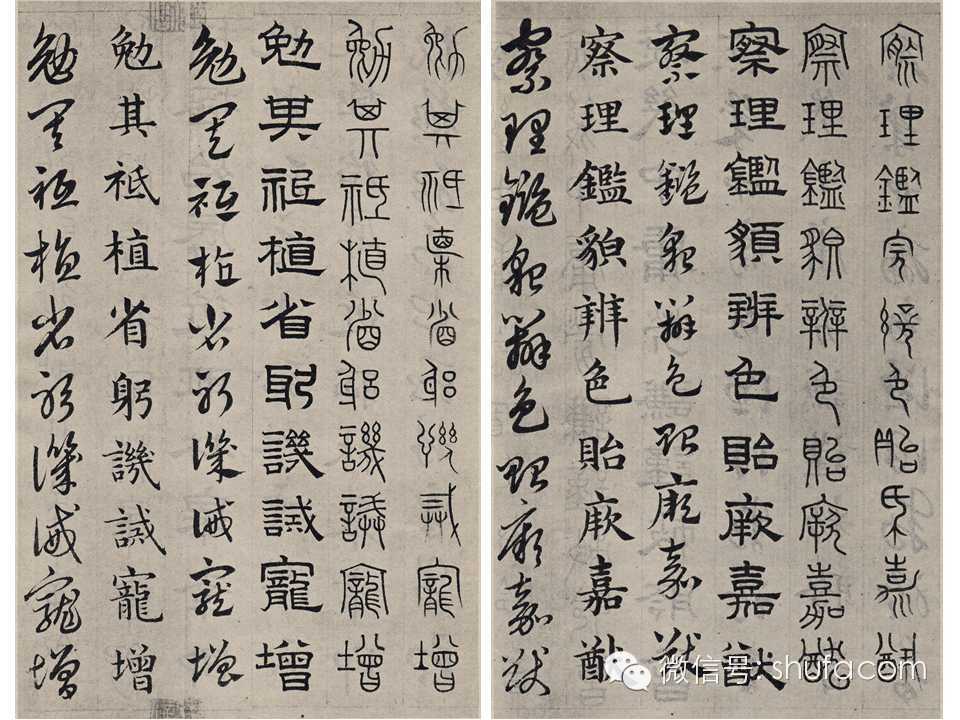 察理鑑貌辨色貽厥嘉猷
察理鑑貌辨色貽厥嘉猷
察理鑑䫉辨色貽厥嘉猷
察理鑑貌辨色貽厥嘉猷
察理鑑貌辨色貽厥嘉猷
察理鑑貌辨色貽厥嘉猷
勉其祗植省躬譏誡寵增
勉其祗植省躬譏誡寵增
勉其祗植省躬譏誡寵增
勉其祗植省躬譏誡寵增
勉其祗植省躬譏誡寵增
勉其祗植省躬譏誡寵增
微信号: shufa.com